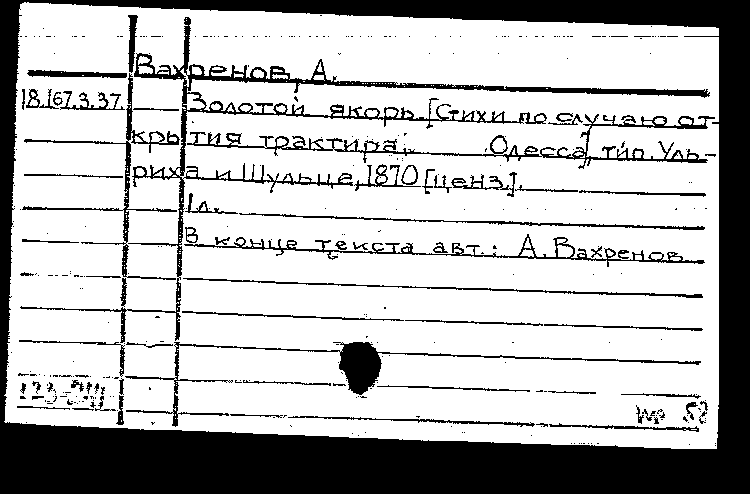 Вахренов, А.
18.167.3.37. Золотой якорь. [Стихи по случаю от-
крытия трактира. Одесса], тип. Уль-
риха и Шульце, 1870 [ценз.].
1л.
В конце текста авт.: А. Вахренов